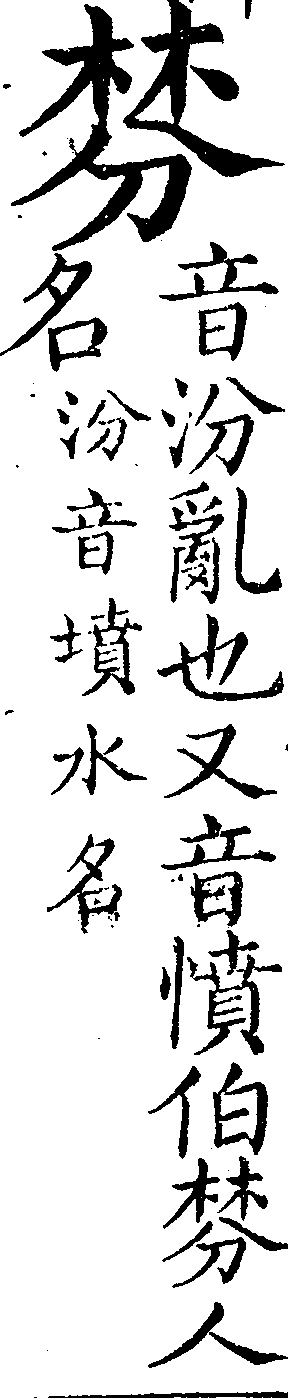 棼
音汾亂也又音憤伯棼人
名汾音墳水名